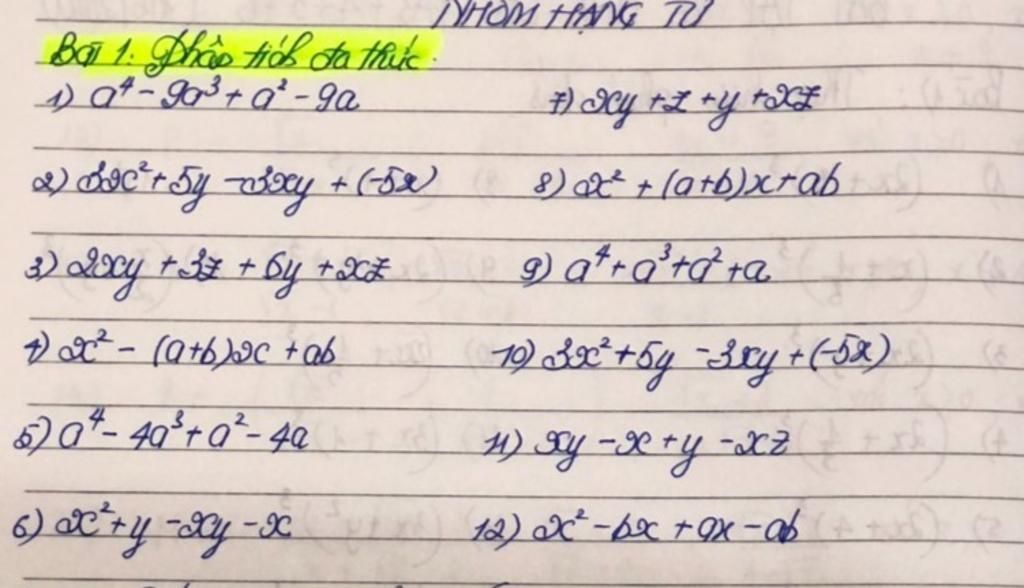 NHÓM HẠNG TỬ
Bài 1: Phân tích đa thức
1) a⁴ - 9a³ + a² - 9a
7) xy + z + y + xz
2) 3x² + 5y - 3xy + (-5x)
8) x² + (a+b)x + ab
3) 2xy + 3z + 6y + xz
9) a⁴ + a³ + a² + a
4) x² - (a+b)x + ab
10) 3x² + 5y - 3xy + (-5x)
5) a⁴ - 4a³ + a² - 4a
11) xy - x + y - xz
6) x² + y - xy - x
12) x² - bx + ax - ab